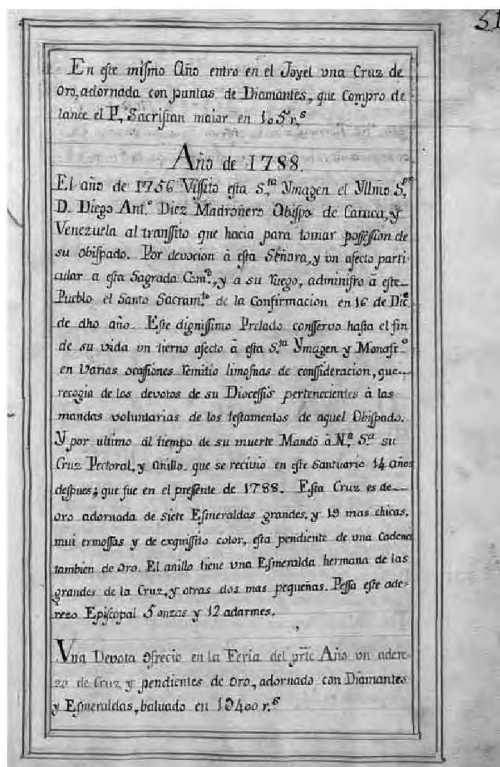 51
En este mismo Año entro en el Joyel vna Cruz de
Oro, adornada con puntas de Diamantes, que Compro de
lance el P, Sacristan maior en 105 r.s
Año de 1788.
El año de 1756 Vissito esta S.ta Ymagen el Yllmo S.or
D. Diego Ant.o Diez Madroñero Obispo de Caraca, y
Venezuela al transsito que hacia para tomar possession de
su Obispado. Por devocion à esta Señora, y un afecto parti
cular a esta Sagrada Com.d, y a su ruego, administro à este
Pueblo el Santo Sacram.to de la Confirmacion en 16 de Dic.e
de dho año. Este dignissimo Prelado conservo hasta el fin
de su vida un tierno afecto à esta S.ta Ymagen y Monast.o
en Varias ocassiones remitio limosnas de conssideracion, que
recogia de los devotos de su Diocessis pertenecientes à las
mandas voluntarias de los testamentos de aquel Obispado.
Y por ultimo àl tiempo de su muerte Mandò à N.a S.ra su
Cruz Pectoral, y Anillo, que se recivio en este Santuario 14 años
despues; que fue en el pressente de 1788. Esta Cruz es de
oro adornada de siete Esmeraldas grandes, y 19 mas chicas,
mui ermossas y de exquissito color, esta pendiente de una Cadena
tambien de oro. El anillo tiene una Esmeralda hermana de las
grandes de la Cruz, y otras dos mas pequeñas. Pessa este ade-
rezo Episcopal 5 onzas y 12 adarmes.
Vna Devota ofrecio en la Feria del prte Año un adere-
zo de Cruz, y pendientes de oro, adornado con Diamantes
y Esmeraldas, baluado en 19400 r.s